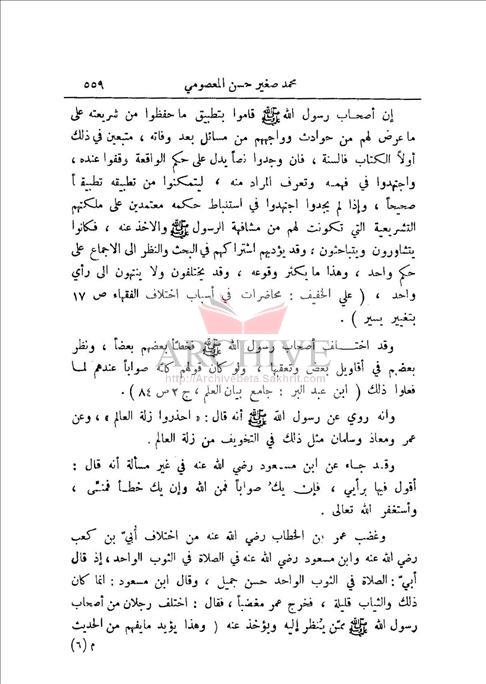 محمد صغير حسن المعصومي ٥٥٩
إن أصحاب رسول الله ﷺ قاموا بتطبيق ما حفظوا من شريعته على
ما عرض لهم من حوادث وواجههم من مسائل بعد وفاته ، متبعين في ذلك
أولاً الكتاب فالسنة ، فان وجدوا نصاً يدل على حكم الواقعة وقفوا عنده ،
واجتهدوا في فهمه وتعرف المراد منه ، ليتمكنوا من تطبيقه تطبيقاً
صحيحاً ، وإذا لم يجدوا اجتهدوا في استنباط حكمه معتمدين على ملكتهم
التشريعية التي تكونت لهم من مشافهة الرسول ﷺ والاخذ عنه ، فكانوا
يتشاورون ويتباحثون ، وقد يؤديهم اشتراكهم في البحث والنظر الى الاجماع على
حكم واحد ، وهذا ما يكثر وقوعه ، وقد يختلفون ولا ينتهون الى رأي
واحد ، ( علي الخفيف : محاضرات في أسباب اختلاف الفقهاء ص ١٧
بتغيير يسير ) .
وقد اختــلف أصحاب رسول الله ﷺ فخطأ بعضهم بعضاً ، ونظر
بعضهم في أقاويل بعض وتعقبها ، ولو كان قولهم كله صواباً عندهم لمـا
فعلوا ذلك ( ابن عبد البر : جامع بيان العلم ، ج ٢ ص ٨٤ ) .
ARCHIVE
http://Archivebeta.Sakhrit.com
وانه روي عن رسول الله ﷺ أنه قال : « احذروا زلة العالم » ، وعن
عمر ومعاذ وسلمان مثل ذلك في التخويف من زلة العالم .
وقـد جـاء عن ابن مسـعود رضي الله عنه في غير مسألة أنه قال :
أقول فيها برأيي ، فإن يكُ صواباً فمن الله وإن يك خطـأ فمنـّي ،
وأستغفر الله تعالى .
وغضب عمر بن الخطاب رضي الله عنه من اختلاف أُبيّ بن كعب
رضي الله عنه وابن مسعود رضي الله عنه في الصلاة في الثوب الواحد ، إذ قال
أبيّ : الصلاة في الثوب الواحد حسن جميل ، وقال ابن مسعود : انما كان
ذلك والثياب قليلة ، فخرج عمر مغضباً ، فقال : اختلف رجلان من أصحاب
رسول الله ﷺ ممّن يُنظر إليه ويؤخذ عنه ( وهذا يؤيد ما يفهم من الحديث
م (٦)